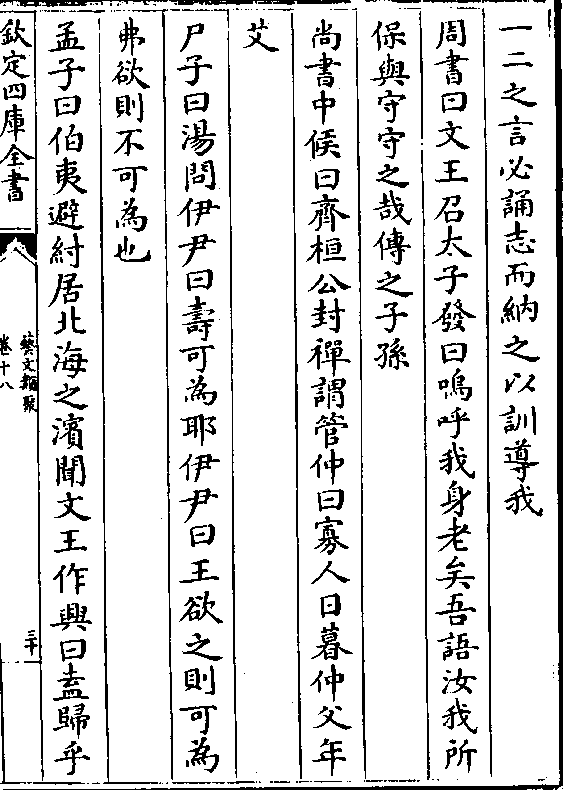 一二之言必誦志而納之以訓導我
周書曰文王召太子發曰嗚呼我身老矣吾語汝我所
保與守守之哉傳之子孫
尚書中候曰齊桓公封禪謂管仲曰寡人日暮仲父年
艾
尸子曰湯問伊尹曰壽可為耶伊尹曰王欲之則可為
弗欲則不可為也
孟子曰伯夷避紂居北海之濱聞文王作興曰盍歸乎
欽定四庫全書
藝文類聚
卷十八
三十